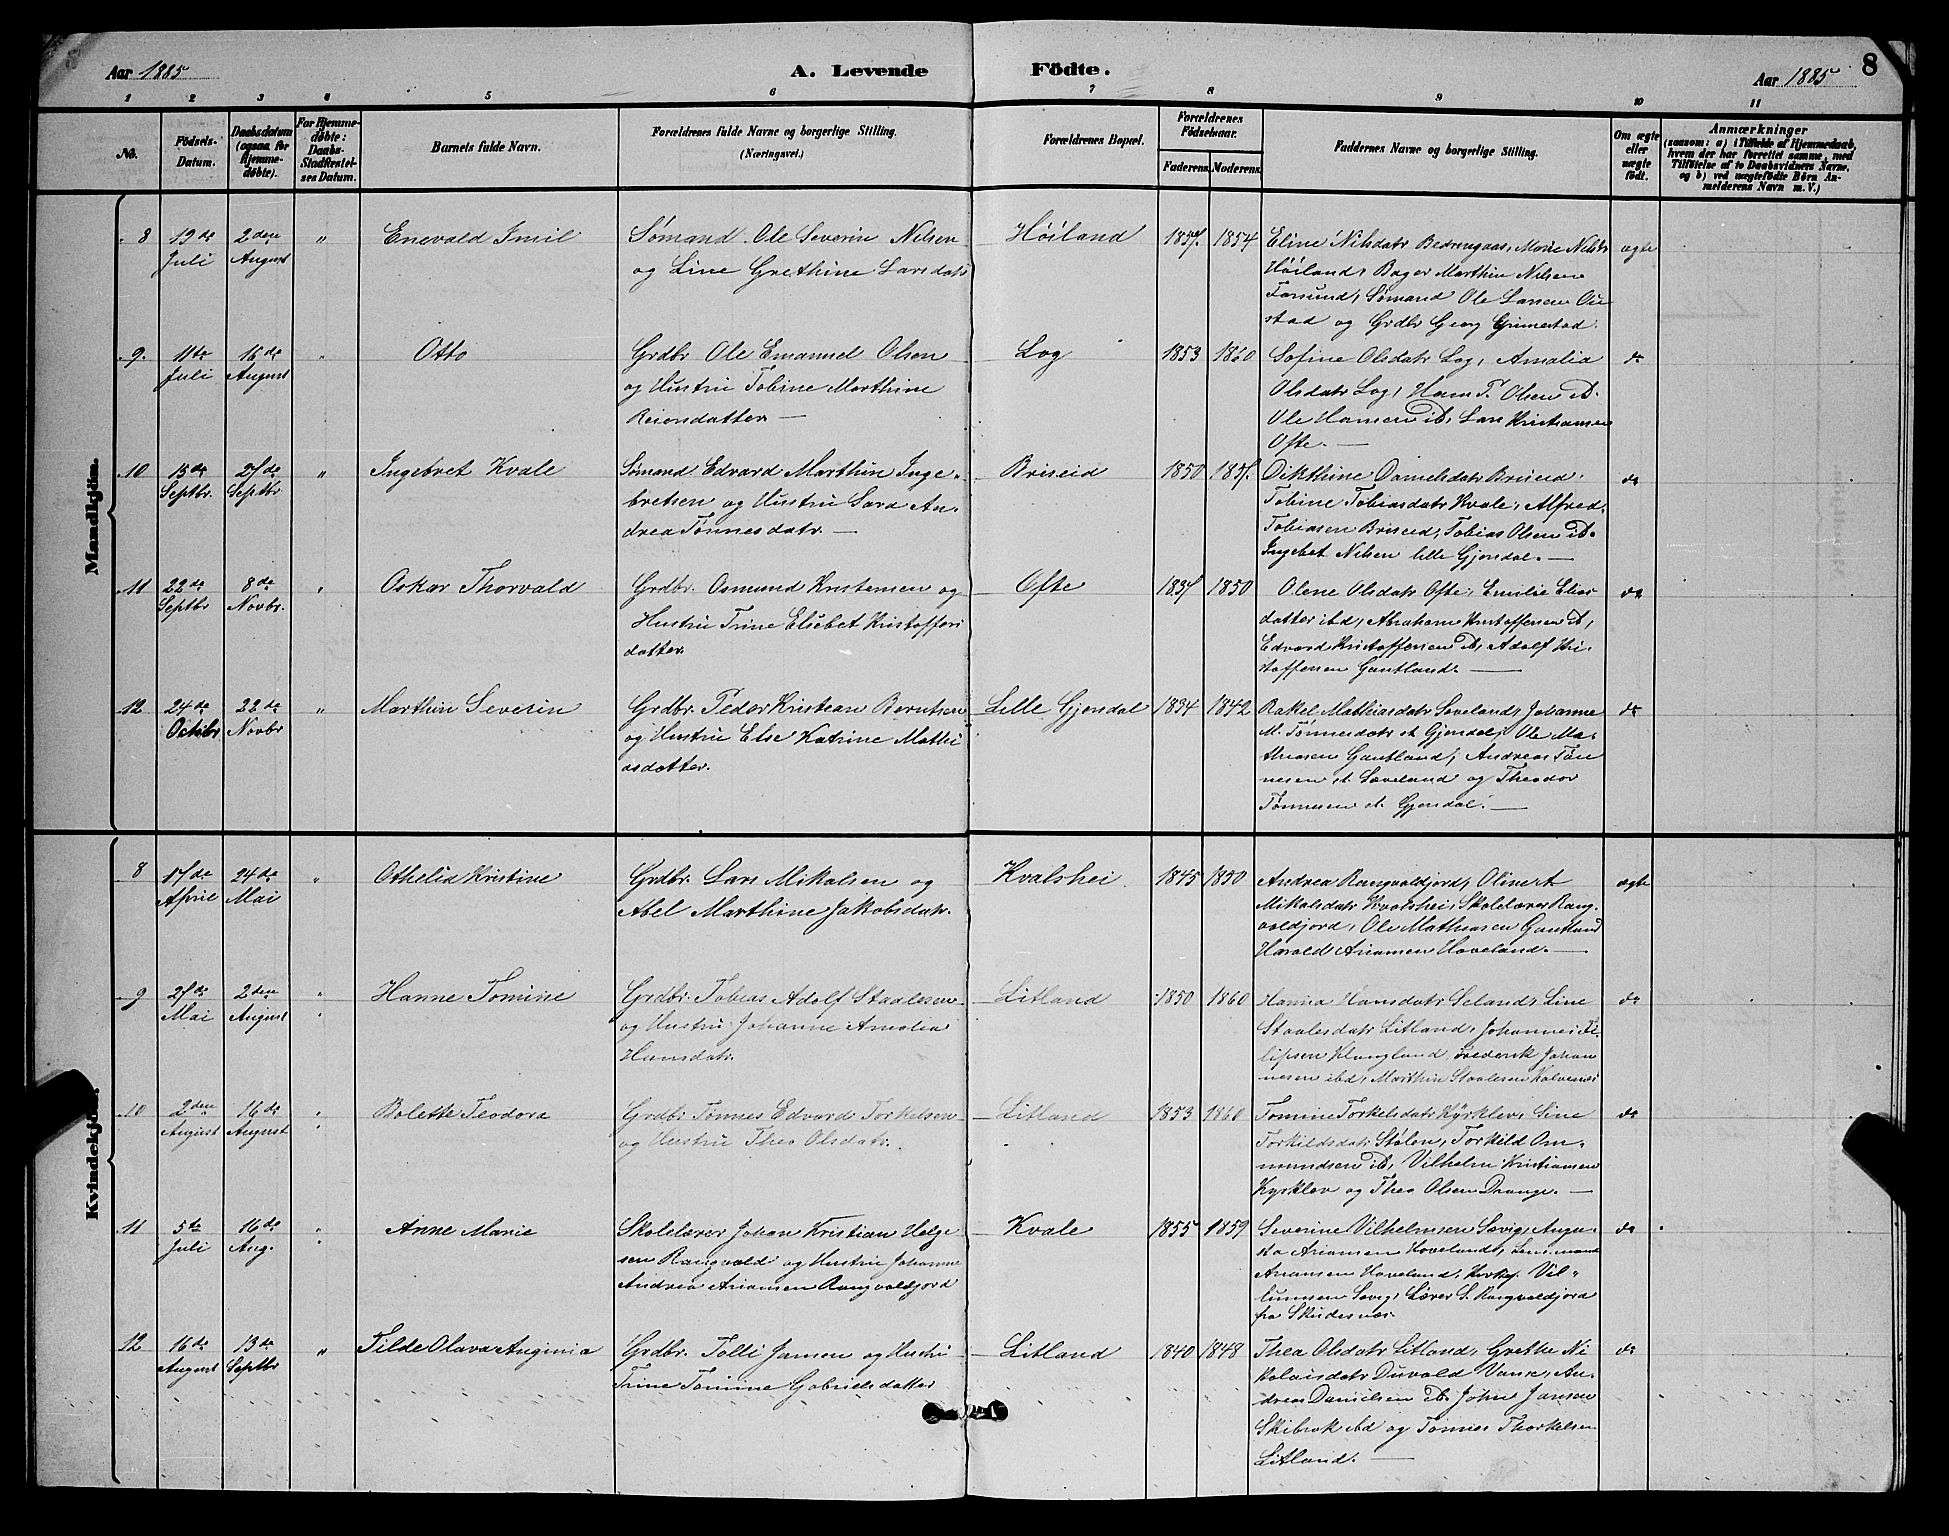 Aar 1885
A. Levende Födte.
Aar 1885
8
1 2 3 4 5 6 7 8 9 10 11
No.
Födsels-
Datum.
Daabsdatum
(ogsaa for
Hjemme-
døbte).
For Hjemme-
døbte:
Daabs-
Stadfæstel-
ses Datum.
Barnets fulde Navn.
Forældrenes fulde Navne og borgerlige Stilling.
(Næringsvei.)
Forældrenes Bopæl.
Forældrenes
Födselsaar.
Faderens. Moderens.
Faddernes Navne og borgerlige Stilling.
Om ægte
eller
uægte
födt.
Anmærkninger
(saasom: a) i Tilfælde af Hjemmedaab,
hvem der har forrettet samme, med
Tilføielse af to Daabsvidners Navne,
og b) ved uægtefödte Börn An-
melderens Navn m. V.)
Mandkjön.
8 19de Juli 2den August " Enevald Emil
Sømand Ole Severin Nilsen
og Line Grethine Larsdatr
Höiland 1857. 1854
Eline Nilsdatr Bedringaas, Marie Nilsdr
Höiland, Bager Marthin Nilsen
Farsund, Sømand Ole Larsen Ou
stad og Grdbr Georg Grimestad.
ægte
9. 11te Juli 16de August " Otto
Grdbr Ole Emanuel Olsen
og Hustru Tobine Marthine
Reiersdatter —
Log 1853 1860
Sofine Olsdatr Log, Amalia
Olsdatr Log, Hans T. Olsen ibd.
Ole Hansen ibd, Lars Kristiansen
Ofte. —
do
10 15de Septbr. 27de Septbr " Ingebret Kvale
Sømand Edvard Marthin Inge-
bretsen og Hustru Sara An-
drea Tønnesdatr. —
Briseid 1850 1857.
Dikthine Danielsdatr Briseid.
Tobine Tobiasdatr Kvale, Alfred
Tobiasen Briseid, Tobias Olsen ibd.
Ingebet Nilsen lille Gjendal. —
do
11 22de Septbr 8de Novbr. " Oskar Thorvald
Grdbr. Osmund Kristensen og
Hustru Trine Elisebet Kristoffers
datter
Ofte 1837 1850
Olene Olsdatr Ofte, Emilie Elias
datter ibd, Abraham Kristoffersen ibd,
Edvard Kristoffersen ibd, Adolf Kri-
stoffersen Gautland. —
do
12 24de Octobr 22de Novbr " Marthin Severin
Grdbr. Peder Kristian Berntsen
og Hustru Else Katrine Mathi
asdatter.
Lille Gjendal 1834 1842
Rakel Mathiasdatr Sæveland, Johanne
M. Tønnesdatr st Gjendal, Ole Ma-
thiasen Gautland, Andreas Tøn
nesen st Sæveland og Theodor
Tønnesen st. Gjendal. —
do
Kvindekjön.
8 17de April 24de Mai " Othelia Kristine
Grdbr. Lars Mikalsen og
Abel Marthine Jakobsdatr.
Kvalshei. 1845 1850
Andrea Rangvaldjord, Oline A
Mikalsdatr Kvalshei, Skolelærer Rang-
valdjord, Ole Mathiasen Gautland
Harald Ariansen Hoveland. —
ægte
9 27de Mai 2den August " Hanne Tomine
Grdbr. Tobias Adolf Staalesen
og Hustru Johanne Amalia
Hansdatr.
Litland 1850 1860
Hanna Hansdatr Seland, Line
Staalesdatr Litland, Johannes Fi-
lipsen Klungland, Frederik Johan
nesen ibd, Marthin Staalesen Kalvenes
do
10 2den August 16de August " Bolette Teodora
Grdbr. Tønnes Edvard Torkelsen
og Hustru Thea Olsdatr.
Litland 1853 1860
Tomine Torkelsdatr Kyrklev, Line
Torkildsdatr Stølen, Torkild Om-
mundsen ibd, Vilhelm Kristiansen
Kyrklev og Theo Olsen Drange. —
do
11 5te Juli 16de Aug. " Anne Marie
Skolelærer Johan Kristian Helge
sen Rangvald og Hustru Johanne
Andrea Ariansen Rangvaldjord
Kvale 1855 1859
Severine Vilhelmsen Sævig, Augu-
sta Ariansen Hoveland, Lensmand
Ariansen Hoveland, Kirkesg. Vil-
lumsen Sævig, Lærer S. Rangvaldjord
fra Skudesnæs.
do
12 16de August 13de Septbr " Tilde Olava Auginia
Grdbr. Tolli Jansen og Hustru
Trine Tomine Gabrielsdatter
Litland 1840 1848
Thea Olsdatr Litland, Grethe Ni
kolaisdatr Duvold Vanse, An-
dreas Danielsen ibd. John Jansen
Skibrok ibd og Tønnes Thorkelsen
Litland. —
do